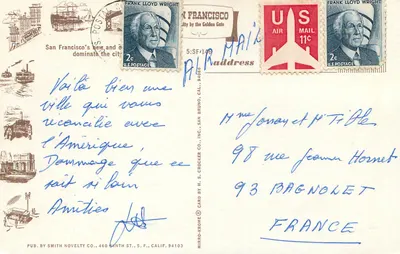 FRANK LLOYD WRIGHT
2¢ U.S. POSTAGE
SAN FRANCISCO
city by the Golden Gate
US
AIR MAIL 11¢
FRANK LLOYD WRIGHT
2¢ U.S. POSTAGE
San Francisco's new and
dominate the city
address
AIR MAIL
Voilà bien une
ville qui vous
réconcilie avec
l'Amérique.
Dommage que ce
soit si loin
Amitiés
Mme Jonay et M
98 rue Jeanne Hornet
93 BAGNOLET
FRANCE
MIRRO-KROME ® CARD BY H. S. CROCKER CO., INC., SAN BRUNO, CAL.
PUB. BY SMITH NOVELTY CO., 460 NINTH ST., S. F., CALIF. 94103